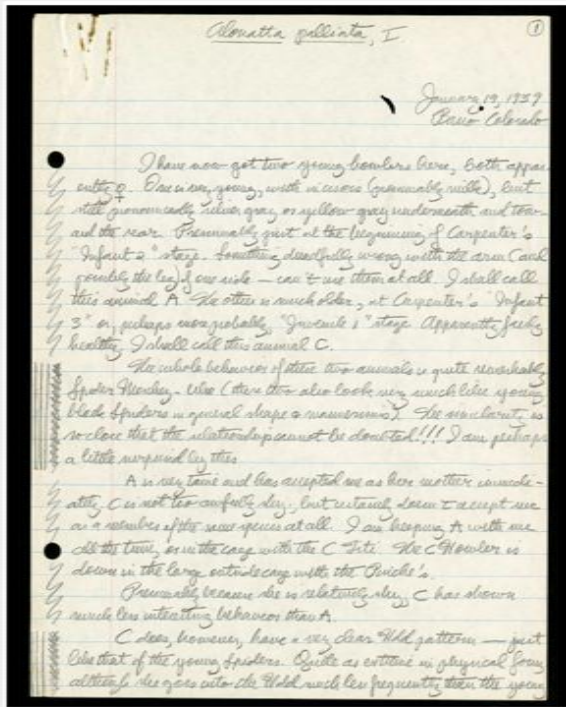 Alouatta palliata, I.
1
January 19, 1959
Barro Colorado
I have now got two young howlers here, both appar-
ently ♀. One is very young, with incisors (presumably milk), but
still pronouncedly silver gray or yellow gray underneath and tow-
ard the rear. Presumably just at the beginning of Carpenter's
"Infant 2" stage. Something dreadfully wrong with the arm (and
possibly the leg) of one side — can't use them at all. I shall call
this animal A. The other is much older, at Carpenter's "Infant
3" or, perhaps more probably, "Juvenile 1" stage. Apparently fairly
healthy. I shall call this animal C.
The whole behavior of these two animals is quite remarkably
Spider Monkey-like (these two also look very much like young
black Spiders in general shape & mannerisms). The similarity is
so close that the relationship cannot be doubted!!! I am perhaps
a little surprised by this
A is very tame and has accepted me as her mother immedi-
ately. C is not too awfully shy, but certainly doesn't accept me
as a member of the same species at all. I am keeping A with me
all the time, or in the cage with the C Titi. The C Howler is
down in the large outside cage with the Pinché's.
Presumably because she is relatively shy, C has shown
much less interesting behavior than A.
C does, however, have a very clear Hold pattern — just
like that of the young Spiders. Quite as extreme in physical form
although she goes into the Hold much less frequently than the young